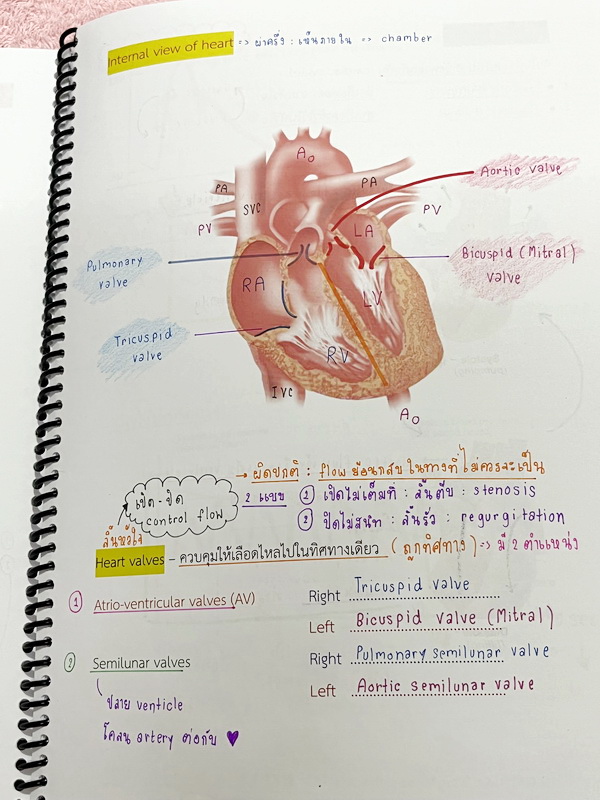 Internal view of heart => ผ่าครึ่ง : เห็นภายใน => chamber
Ao
Aortic valve
PA
PA
SVC
PV
PV
LA
Pulmonary
valve
Bicuspid (Mitral)
valve
RA
LV
Tricuspid
valve
RV
IVC
Ao
→ ผิดปกติ : flow ย้อนกลับ ในทางที่ ไม่ควรจะเป็น
เปิด-ปิด
control flow
2 แบบ ① เปิดไม่เต็มที่ : ลิ้นตีบ : stenosis
② ปิดไม่สนิท : ลิ้นรั่ว : regurgitation
ลิ้นหัวใจ
Heart valves – ควบคุมให้เลือดไหลไปในทิศทางเดียว (ถูกทิศทาง) => มี 2 ตำแหน่ง
① Atrio-ventricular valves (AV)
Right Tricuspid valve
Left Bicuspid valve (Mitral)
② Semilunar valves
Right Pulmonary semilunar valve
Left Aortic semilunar valve
ปลาย venticle
โคนน artery ต่อกับ ♥